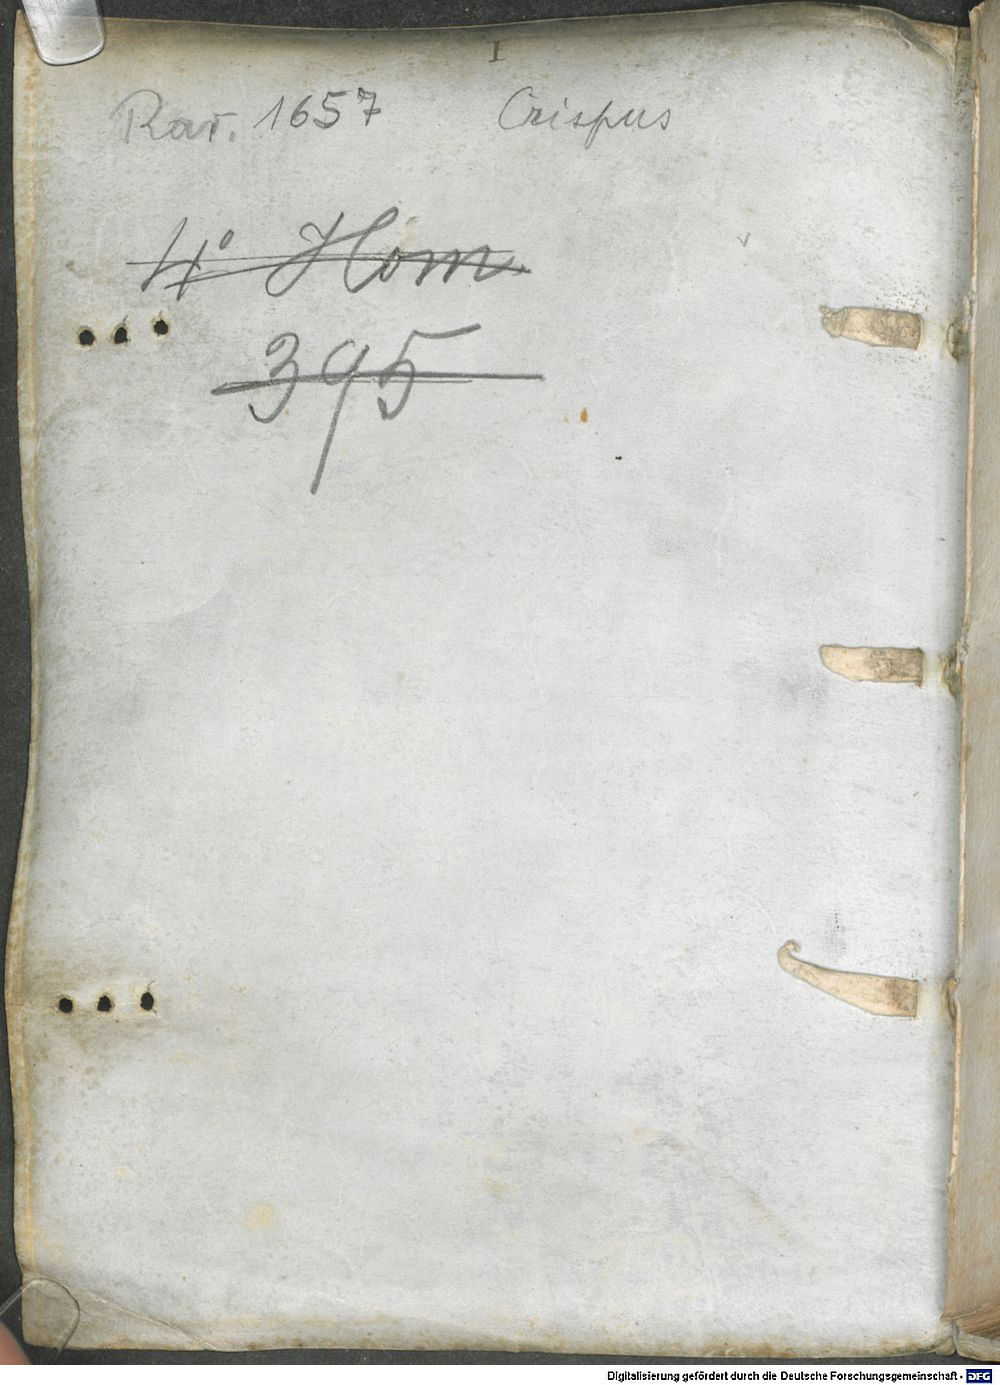 I
Rar. 1657 Crispus
4° Hom
395
Digitalisierung gefördert durch die Deutsche Forschungsgemeinschaft - DFG